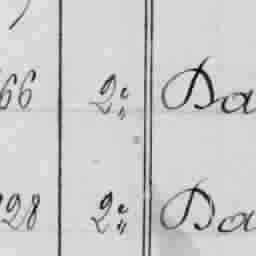 66 2 Da
928 2 Da